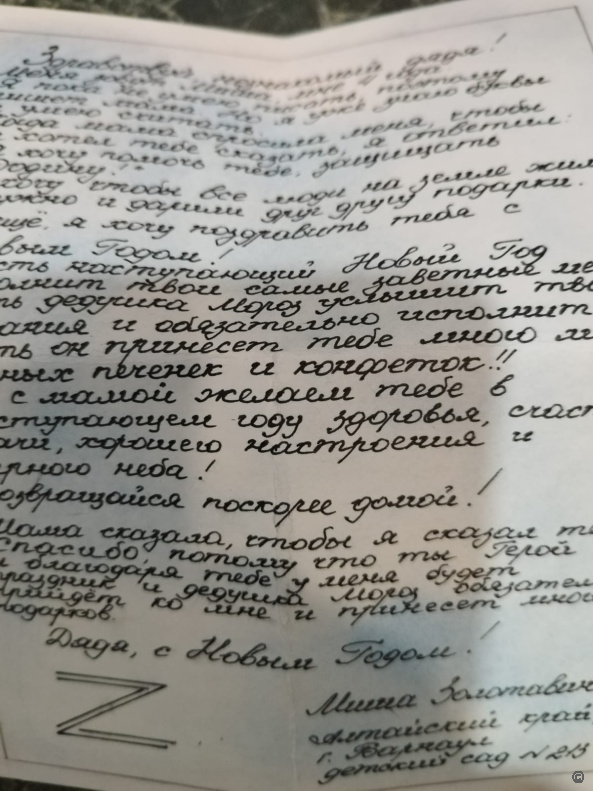 Здравствуй, незнакомый дядя!
меня зовут Миша, мне 4 года.
я пока не умею писать, поэтому
пишет мама. Но я уже знаю буквы
умею считать.
огда мама спросила меня, чтобы
хотел тебе сказать, я ответил:
я хочу помочь тебе, защищать
Родину!"
хочу чтобы все люди на земле жил
ужно и дарили друг другу подарки.
ещё, я хочу поздравить тебя с
вым Годом!
сть наступающий Новый Год
олнит твои самые заветные ме
ть дедушка Мороз услышит тво
ания и обязательно исполнит
ть он принесет тебе много
ных печенек и конфеток!!
с мамой желаем тебе в
ступающем году здоровья, счаст
ачи, хорошего настроения и
рного неба!
озвращайся поскорее домой!
Мама сказала, чтобы я сказал те
спасибо, потому что ты Герой
и благодаря тебе у меня будет
праздник и дедушка Мороз обязател
прийдёт ко мне и принесет мно
подарков.
Дядя, с Новым Годом!
Z
Миша Золотавин
Алтайский край,
г. Барнаул
детский сад N 213
©